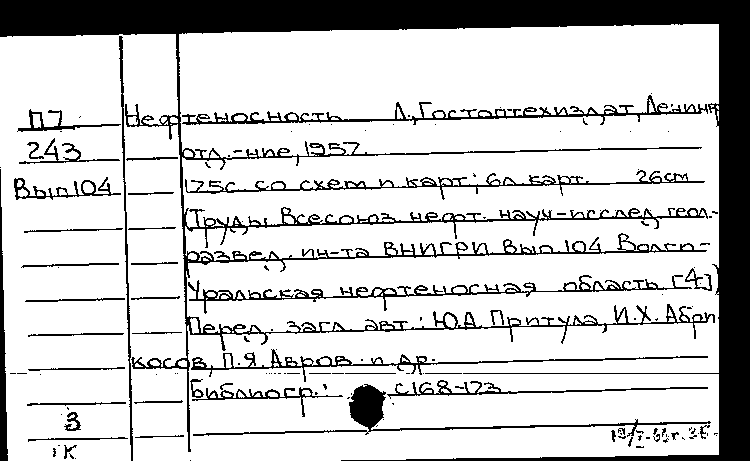 П7 Нефтеносность Л., Гостоптехиздат, Ленингр
243 отд.-ние, 1957.
Вып 104 175с. со схем и карт; 6л. карт. 26см
(Труды Всесоюз нефт. науч-исслед. геол.-
развед. ин-та ВНИГРИ Вып 104 Волго-
Уральская нефтеносная область [4])
Перед. загл. авт.: Ю.А. Притула, И.Х. Абри
косов, П.Я. Авров и др.
Библиогр.: с168-173
3
1К